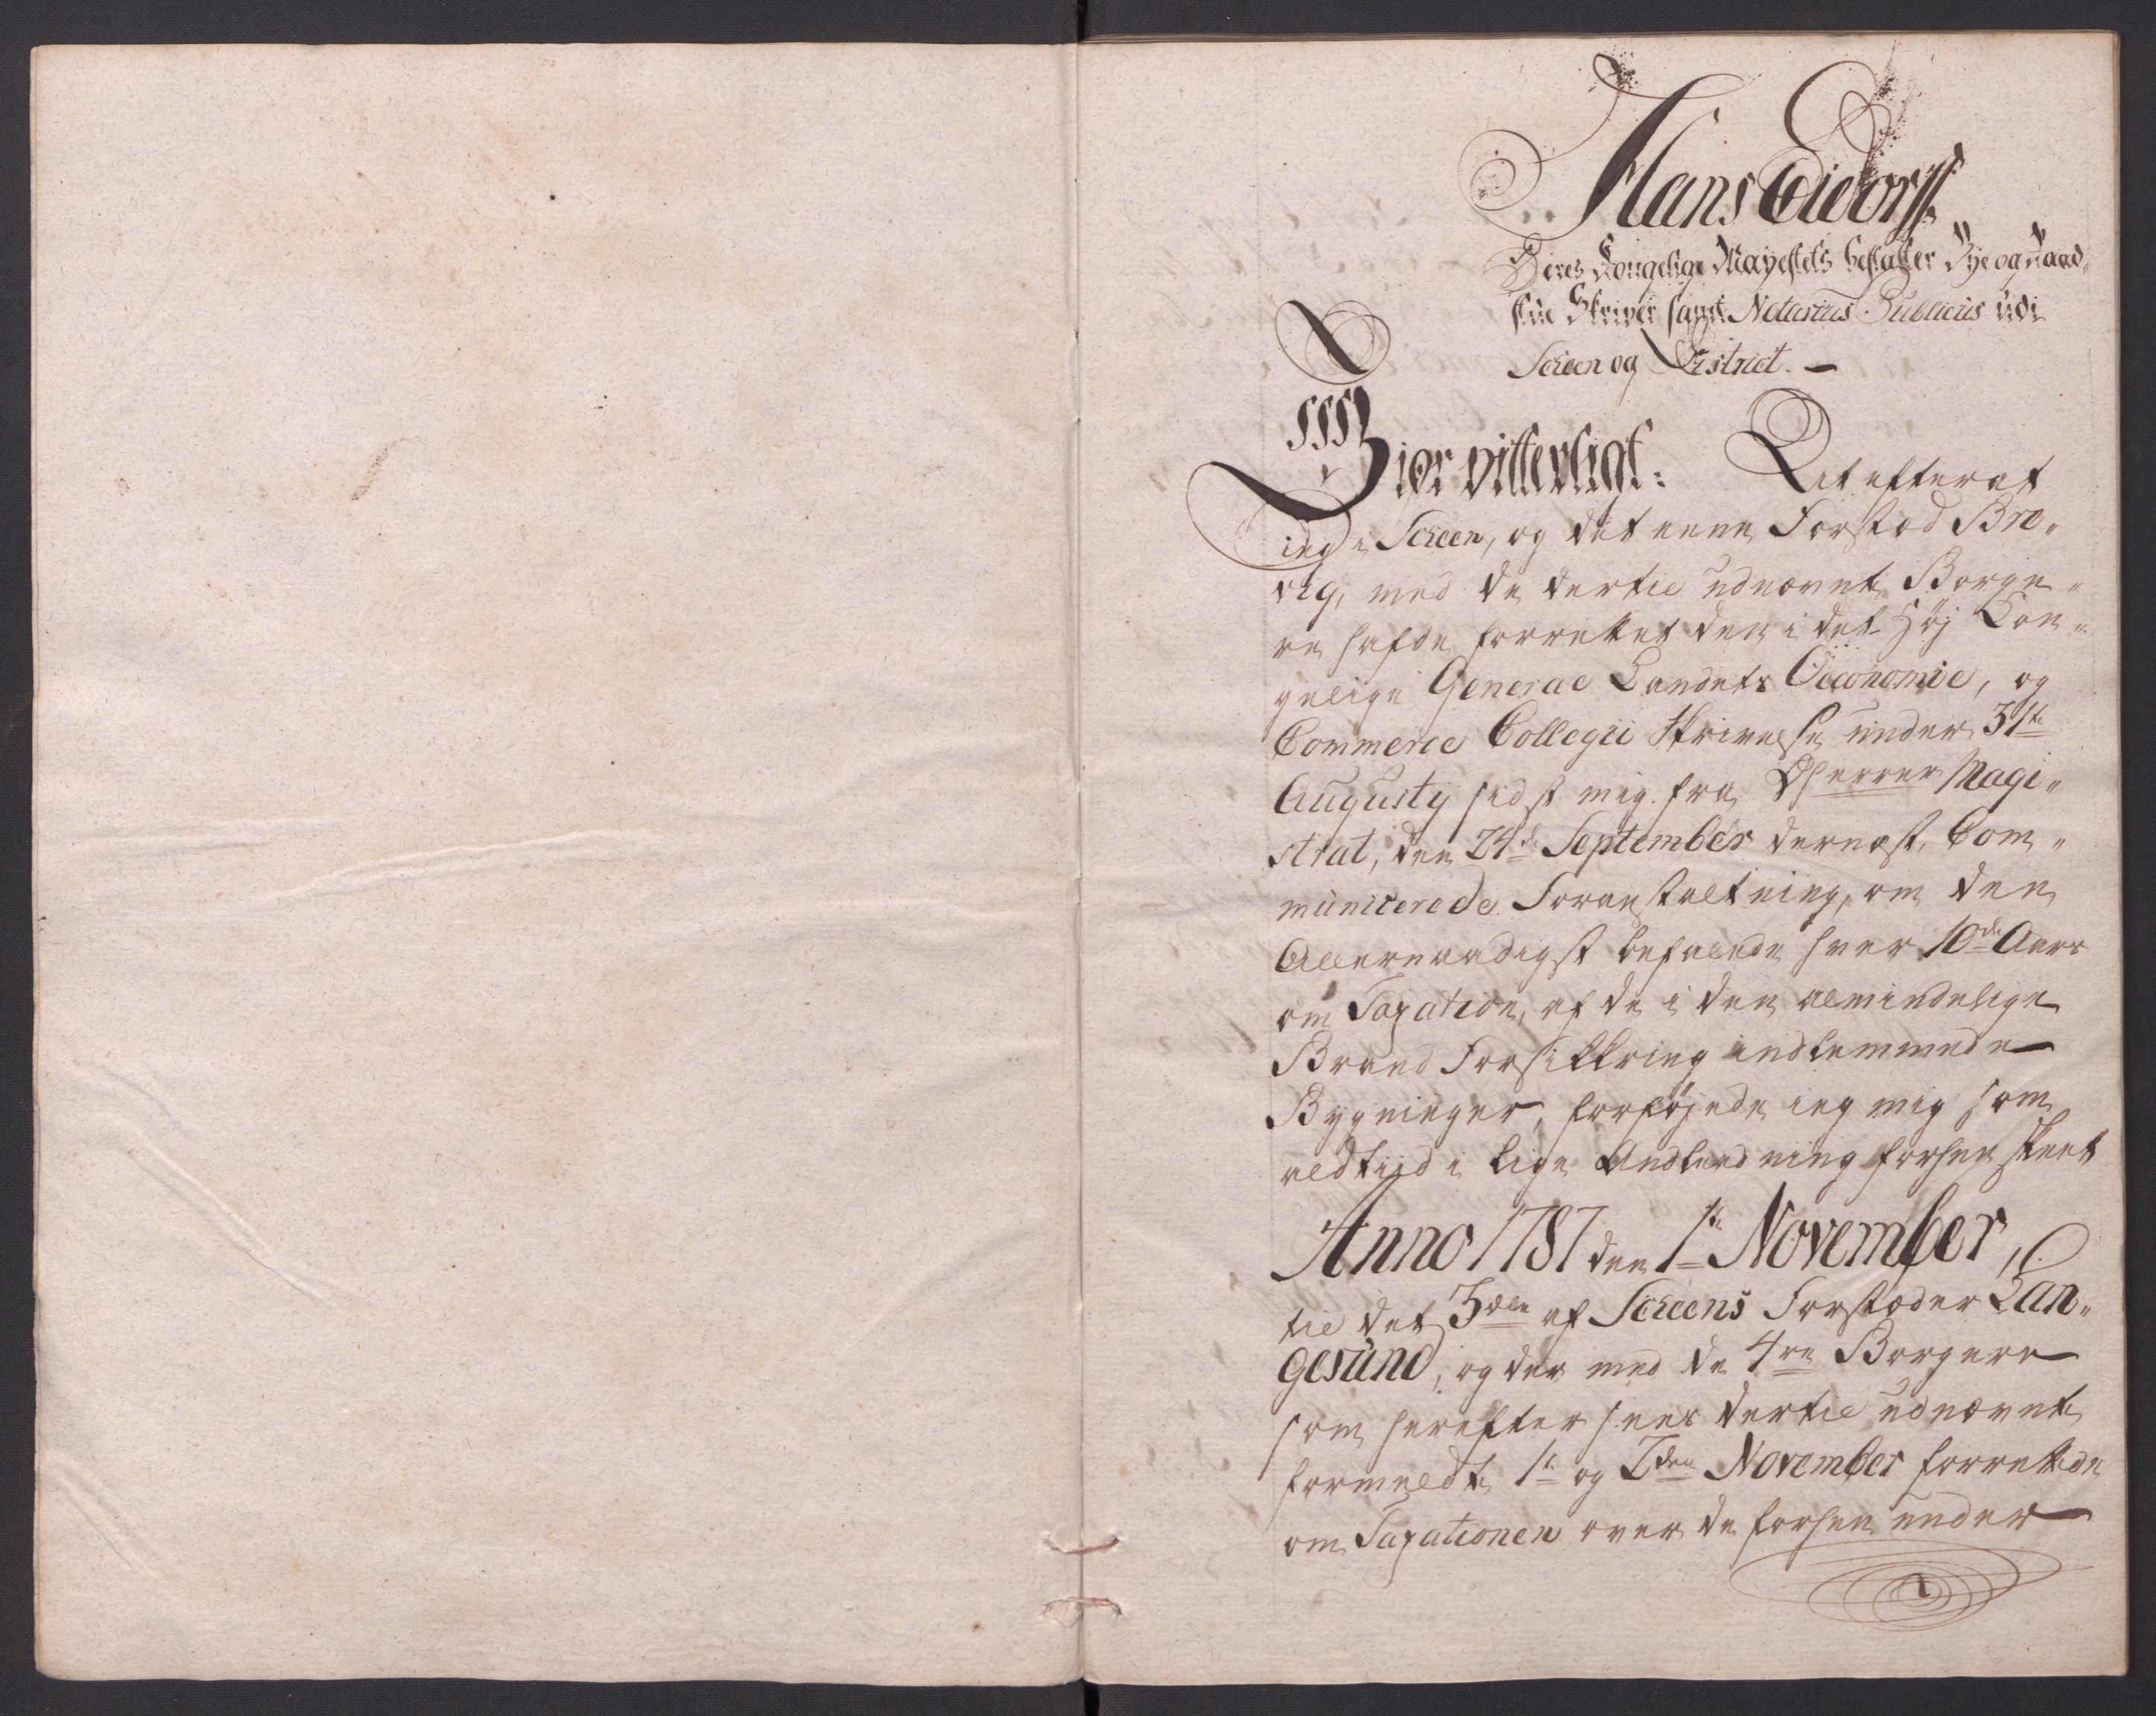 Hans Eidorff
Deres Kongelige Mayestets bestalter Bye og Raad-
stue Skriver samt Notarius Publicus udi
Scheen og District. —
Giør vitterligt: At efterat
ieg i Scheen, og det eene Forstad Bre-
vig, med de dertil udnævnte Borge-
re hafde forrettet den i det Høj Kon-
gelige General Landets Oeconomie, og
Commerce Collegii Skrivelse under 31te
Augusty sidst mig fra Hr. Magi-
strat, den 24de September dernæst, Com-
municerede Foranstaltning, om den
Allernaadigst befalede hver 10de Aars
om Taxation, af de i den almindelige
Brand Forsikkring indlemmede
Bygninger, forføjede ieg mig som
altiid i lige Anledning forhen skeet
Anno 1787 den 1te November,
til det 3die af Scheens Forstæder Lan-
gesund, og der med de 4re Borgere
som herefter sees dertil udnævnte
formeldte 1te og 2den November forrettede
om Taxationen over de forhen under
1